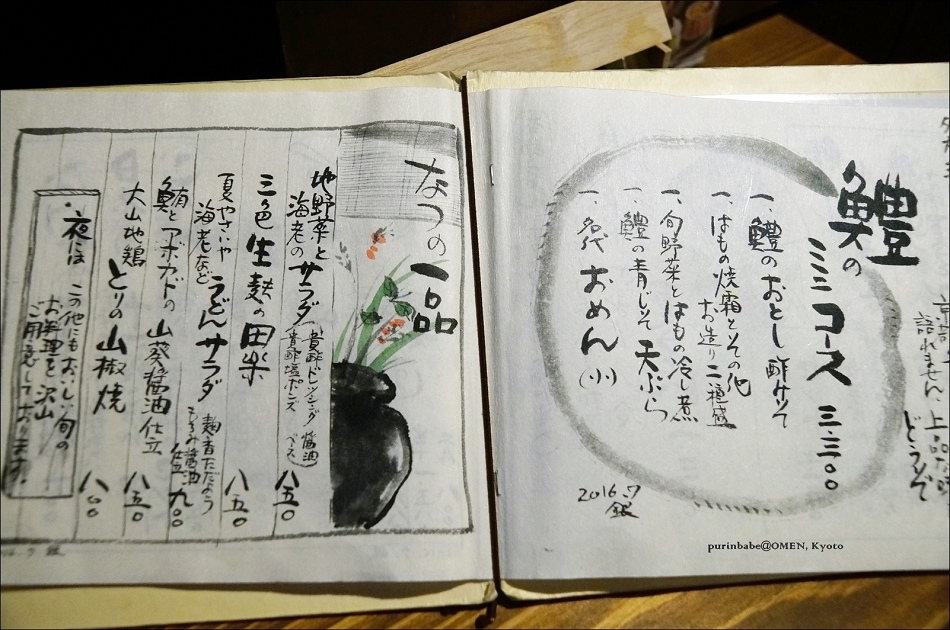 鱧の
ミニコース 三.三〇〇
一、鱧のおとし 酢みそ
一、はもの焼霜とその他
お造り二種盛
一、旬野菜とはもの冷し煮
一、鱧の青じそ天ぷら
一、名代おめん(小)
2016.7
銀
語れません 上品な味
どうぞ
なつの一品
地野菜と
海老のサラダ
八五〇
三色生麩の田楽
八五〇
夏やさいや
海老など
うどんサラダ
麹香たただよう
もろみ醤油
仕立
九〇〇
鮪とアボカドの山葵醤油仕立
八五〇
大山地鶏 とりの山椒焼
八〇〇
夜は
この他にもおいしい旬の
お料理を沢山
ご用意しております。
purinbabe@OMEN, Kyoto